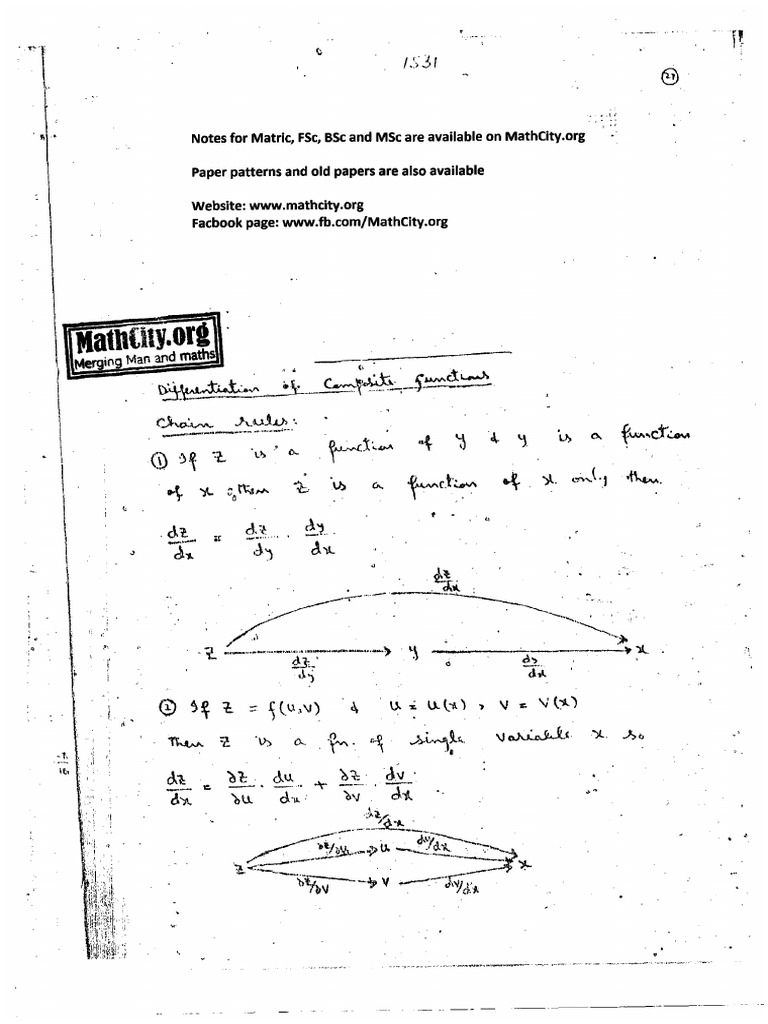 1531
27
Notes for Matric, FSc, BSc and MSc are available on MathCity.org
Paper patterns and old papers are also available
Website: www.mathcity.org
Facbook page: www.fb.com/MathCity.org
MathCity.org
Merging Man and maths
Differentiation of Composite Functions
Chain rules:
① If Z is a function of y & y is a function
of x then Z is a function of x only then.
dz/dx = dz/dy · dy/dx
dz/dx
Z y x
dz/dy dy/dx
② If Z = f(u,v) & u = u(x), v = v(x)
Then Z is a fn. of single variable x so
dz/dx = ∂z/∂u · du/dx + ∂z/∂v · dv/dx
dz/dx
∂z/∂u u du/dx
Z x
∂z/∂v v dv/dx